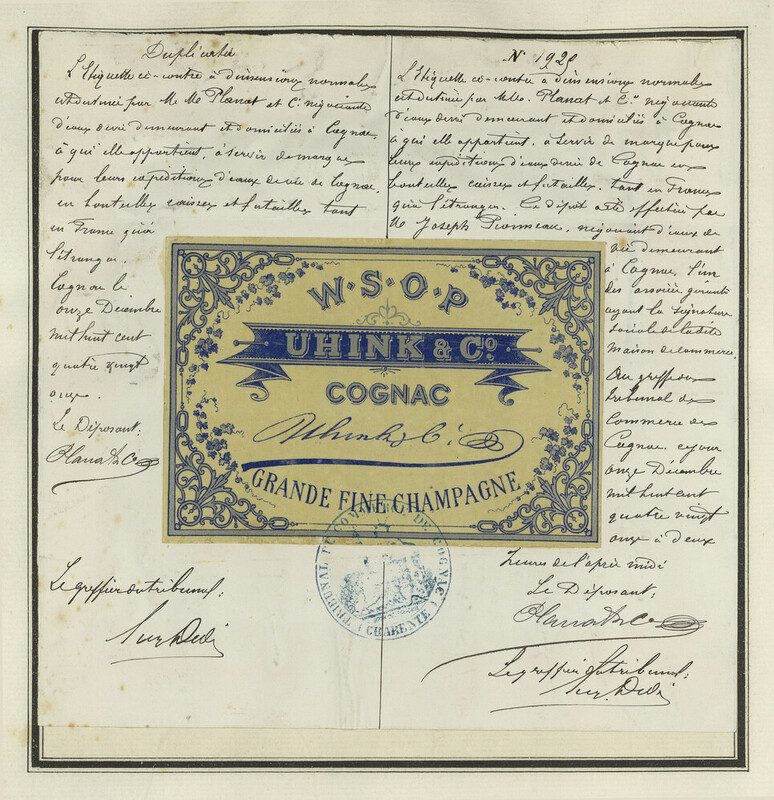 Duplicata
L'Etiquette ci-contre à dimensions normales
est destinée par M. M. Planat et Cie négociants
d'eaux de vie demeurant et domiciliés à Cognac,
à qui elle appartient, à servir de marque
pour leurs expéditions d'eaux de vie de Cognac,
en bouteilles caisses et futailles tant
en France qu'à
l'étranger.
Cognac le
onze Décembre
mil huit cent
quatre vingt
onze.
Le Déposant:
Planat & Co
Le greffier du tribunal:
N° 1929
L'Etiquette ci-contre à dimensions normales
est destinée par M. M. Planat et Cie négociants
d'eaux de vie demeurant et domiciliés à Cognac
à qui elle appartient, à servir de marque pour
leurs expéditions d'eaux de vie de Cognac en
bouteilles caisses et futailles, tant en France
qu'à l'étranger. Ce dépôt a été effectué par
M. Joseph négociant d'eaux de
vie demeurant
à Cognac, l'un
des associés gérants
ayant la signature
sociale de la dite
maison de commerce.
Au greffe du
tribunal de
Commerce de
Cognac, ce jour
onze Décembre
mil huit cent
quatre vingt
onze à deux
heures de l'après midi
Le Déposant:
Planat & Co
Le greffier du tribunal:
W·S·O·P
UHINK & Co.
COGNAC
Uhink & Co.
GRANDE FINE CHAMPAGNE
TRIBUNAL DE COMMERCE DE COGNAC
(CHARENTE)